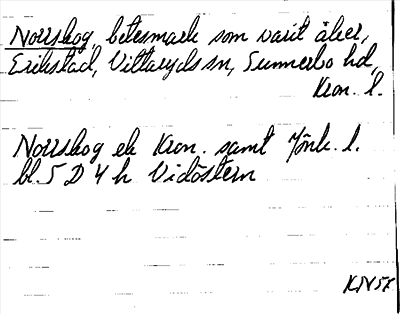 Norrskog, betesmark som varit åker,
Erikstad, Vittaryds sn, Sunnerbo hd,
Kron. l.
Norrskog ek Kron. samt Jönk. l.
bl. 5 D 4 h Vidöstern